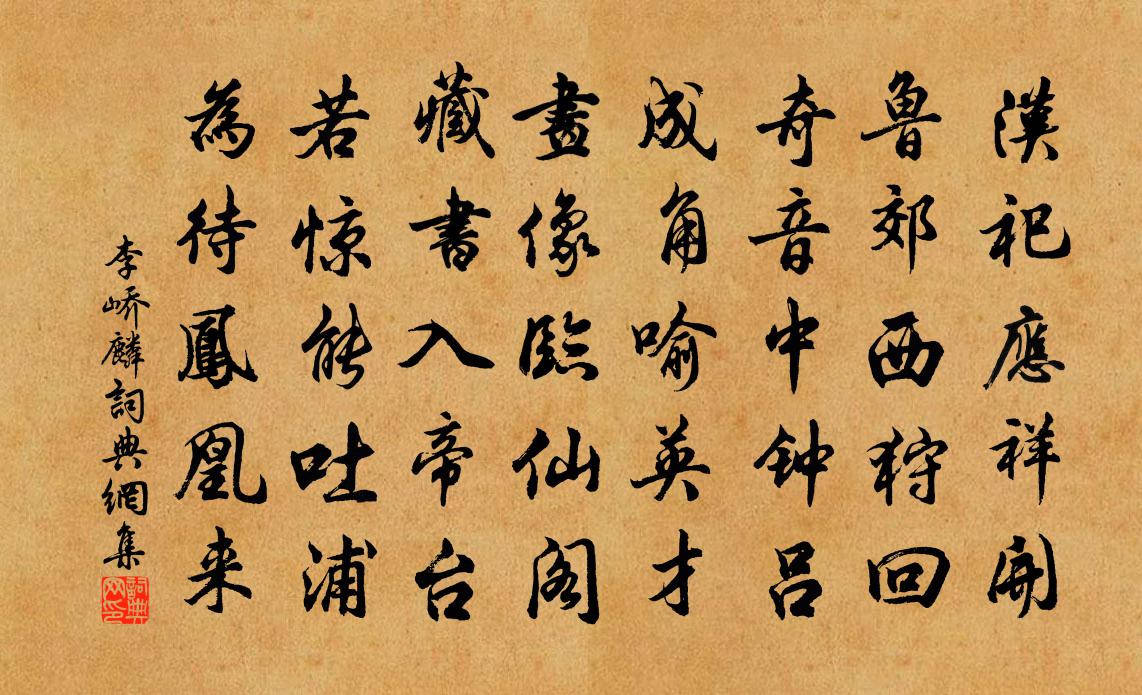 漢祀應祥開
魯郊西狩回
奇音中钟呂
成角喻英才
畫像臨仙阁
藏書入帝台
若惊能吐浦
為待鳳凰来
李峤麟詞典網集
詞典网印